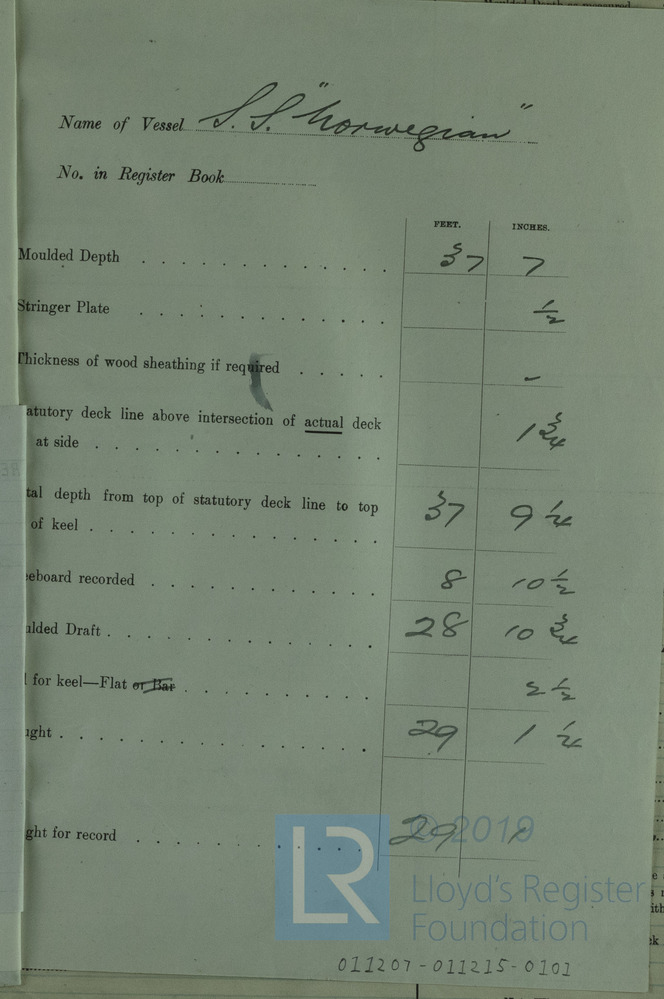 Moulded Depth as measured
Name of Vessel S. S. "Norwegian"
No. in Register Book
FEET. INCHES.
Moulded Depth 37 7
Stringer Plate 1/2
Thickness of wood sheathing if required -
atutory deck line above intersection of actual deck
at side 1 3/4
tal depth from top of statutory deck line to top
of keel 37 9 1/4
eeboard recorded 8 10 1/2
ulded Draft 28 10 3/4
for keel—Flat or Bar 2 1/2
ught 29 1 1/4
ght for record 29 1
© 2019
LR
Lloyd's Register
Foundation
011207-011215-0101